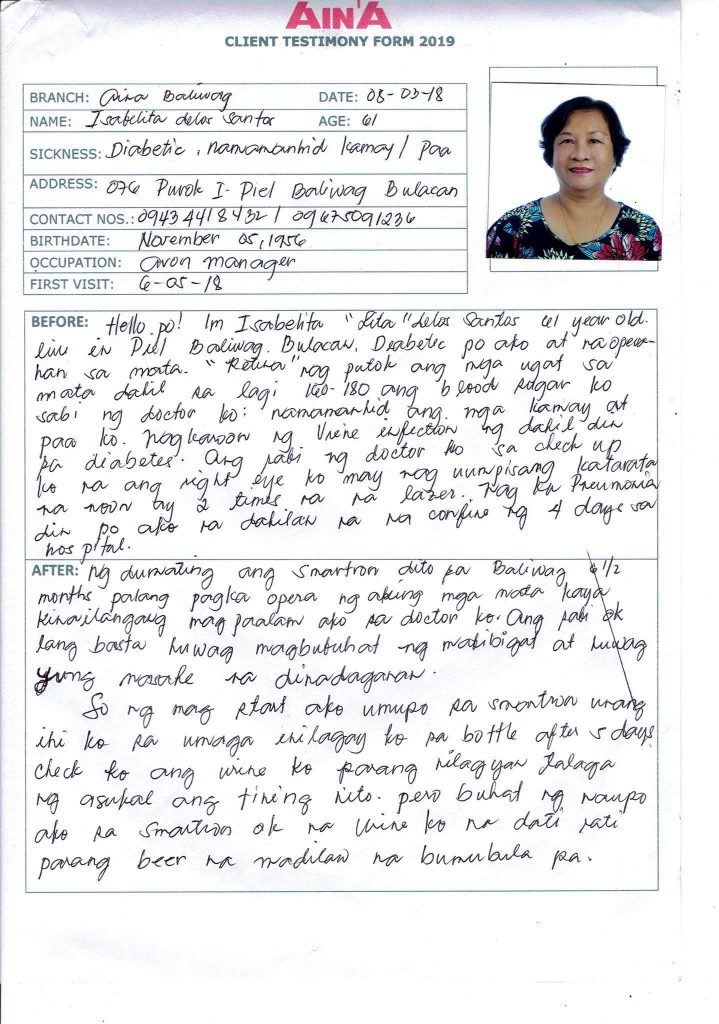 AIN'A
CLIENT TESTIMONY FORM 2019
BRANCH: Aina Baliwag DATE: 08-03-18
NAME: Isabelita delos Santos AGE: 61
SICKNESS: Diabetic, namamanhid kamay / paa
ADDRESS: 076 Purok I- Piel Baliwag Bulacan
CONTACT NOS.: 09434418432 / 09675091236
BIRTHDATE: November 05, 1956
OCCUPATION: Avon manager
FIRST VISIT: 6-05-18
BEFORE: Hello po! Im Isabelita "Lita" delos Santos 61 year old.
live in Piel Baliwag. Bulacan. Diabetic po ako at naopera-
han sa mata. "Retina" nag putok ang mga ugat sa
mata dahil sa lagi 160-180 ang blood sugar ko
sabi ng doctor ko: namamanhid ang mga kamay at
paa ko. Nagkaroon ng Urine infection ng dahil din
sa diabetes. Ang sabi ng doctor ko sa check up
ko na ang right eye ko may nag uumpisang katarata
na noon ay 2 times na na lazer. Nag ka Pneumonia
din po ako na dahilan na na confine ng 4 days sa
hospital.
AFTER: ng dumating ang smartron dito sa Baliwag 6 1/2
months palang pagka opera ng aking mga mata kaya
kinailangang mag paalam ako sa doctor ko. Ang sabi ok
lang basta huwag magbubuhat ng mabibigat at huwag
yung masahe na dinadaganan.
So ng mag start ako umupo sa smartron unang
ihi ko sa umaga inilagay ko sa bottle after 5 days
check ko ang urine ko parang nilagyan talaga
ng asukal ang tining nito. pero buhat ng naupo
ako sa smartron ok na urine ko na dati rati
parang beer na madilaw na bumubula pa.